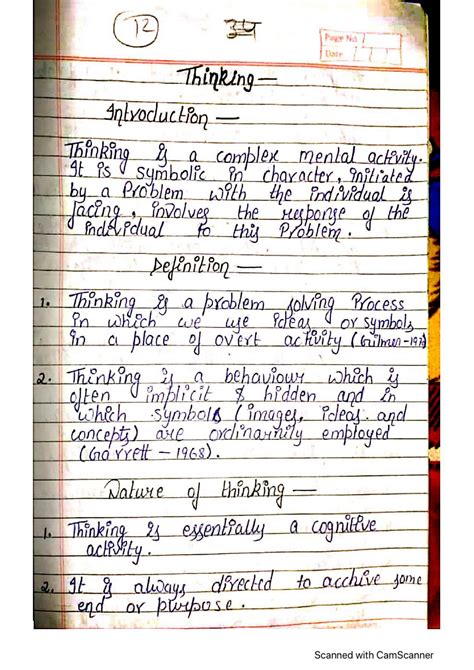 12
34
Page No. 1
Date
Thinking —
Introduction —
Thinking is a complex mental activity.
It is symbolic in character, initiated
by a Problem with the individual is
facing, involves the response of the
individual to this Problem.
Definition —
1. Thinking is a problem solving Process
in which we use ideas or symbols
in a place of overt activity (Gilmer-197
2. Thinking is a behaviour which is
often implicit & hidden and in
which symbols (images, ideas and
concepts) are ordinarnily employed
(Garrett - 1968).
Nature of thinking —
1. Thinking is essentially a cognitive
activity.
2. It is always directed to acchive some
end or purpose.
Scanned with CamScanner